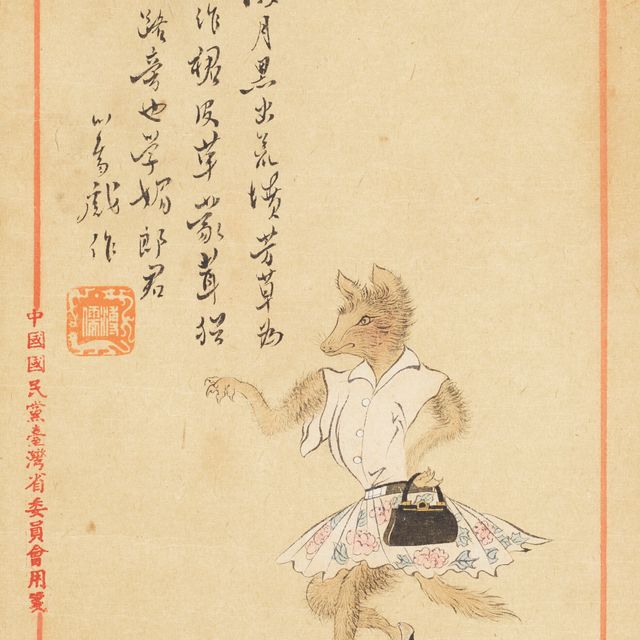 月黑出荒墳芳草為
作裙皮草蒙茸猶
路旁也学媚郎君
心畬戲作
溥儒
中國國民黨臺灣省委員會用箋